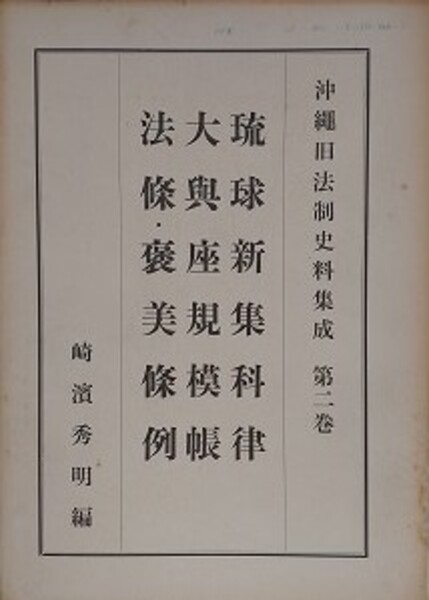 沖繩旧法制史料集成 第二巻
琉球新集科律
大與座規模帳
法條・褒美條例
崎濱秀明編